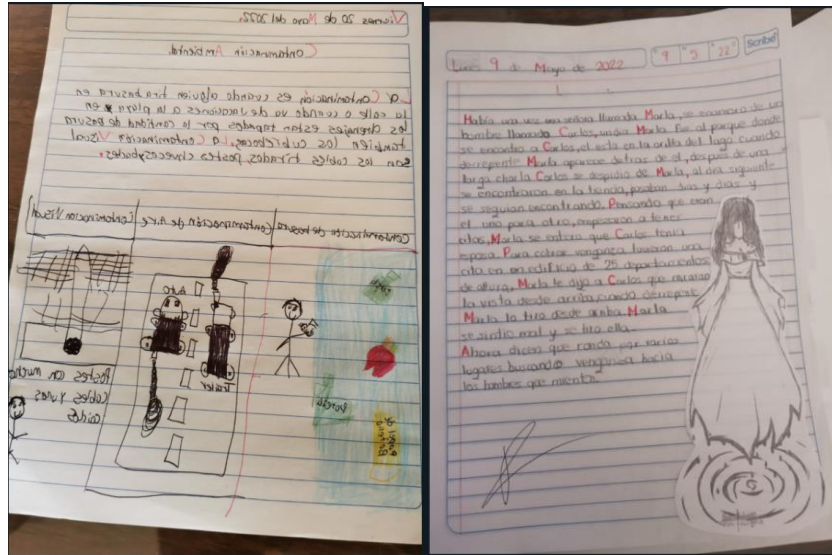 Viernes 20 de Mayo del 2022.
Contaminación Ambiental.
La Contaminación es cuando alguien tira basura en
la calle o cuando va de vacaciones a la playa en
los drenajes esten tapados por la cantidad de basura
tambien los cubrebocas. La Contaminación Visual
son los cables tirados, postes chuecos
Contaminación de basura
Contaminación de Aire
Contaminación Visual
Auto
trailer
Postes con mucho
cables y
caidos
Scribe
Lunes 9 de Mayo de 2022
9 5 22
L
Había una vez una señora llamada Marla, se enamoro de un
hombre llamado Carlos, un dia Marla fue al parque donde
se encontro a Carlos, el esta en la orilla del lago cuando
derrepente Marla aparece detras de el, despues de una
larga charla Carlos se despidio de Marla, al dia siguiente
se encontraron en la tienda, pasaban dias y dias y
se seguian encontrando. Pensando que eran
el uno para otro, empezaron a tener
citas, Marla se entero que Carlos tenia
esposa. Para cobrar venganza tuvieron una
cita en un edificio de 25 departamentos
de altura, Marla le dijo a Carlos que miraran
la vista desde arriba cuando derrepente
Marla lo tiro desde arriba. Marla
se sintio mal y se tiro ella.
Ahora dicen que ronda por varios
lugares buscando venganza hacia
los hombres que mienten.